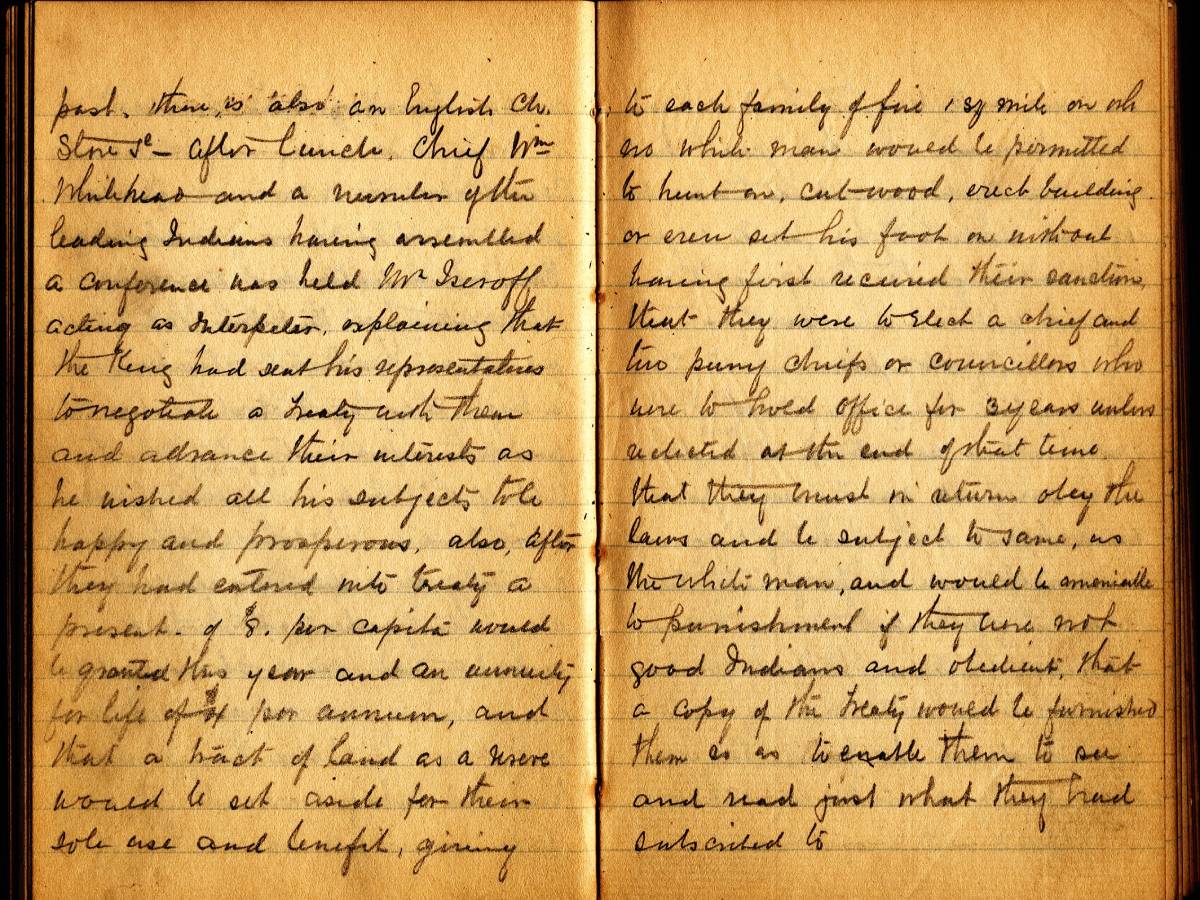 post. there is also an English Ch.
Store &c – after lunch. Chief Wm
Whitehead and a number of the
leading Indians having assembled
a conference was held Mr Iseroff
acting as Interpeter. explaining that
the King had sent his representatives
to negotiate a treaty with them
and advance their interests as
he wished all his subjects to be
happy and prosperous. also, after
they had entered into treaty a
present. of $8. per capita would
be granted this year and an annuity
for life of $4 per annum, and
that a tract of land as a reserve
would be set aside for their
sole use and benefit, giving
to each family of five 1 sq mile on
no white man would be permitted
to hunt on, cut wood, erect building
or even set his foot on without
having first received their sanction,
that they were to elect a chief and
two puny chiefs or councillors who
were to hold office for 3 years unless
relected at the end of that time.
that they must in return obey the
laws and be subject to same, as
the white man, and would be ameniable
to punishment if they were not
good Indians and obedient, that
a copy of the treaty would be furnished
them so as to enable them to see
and read just what they had
subscribed to